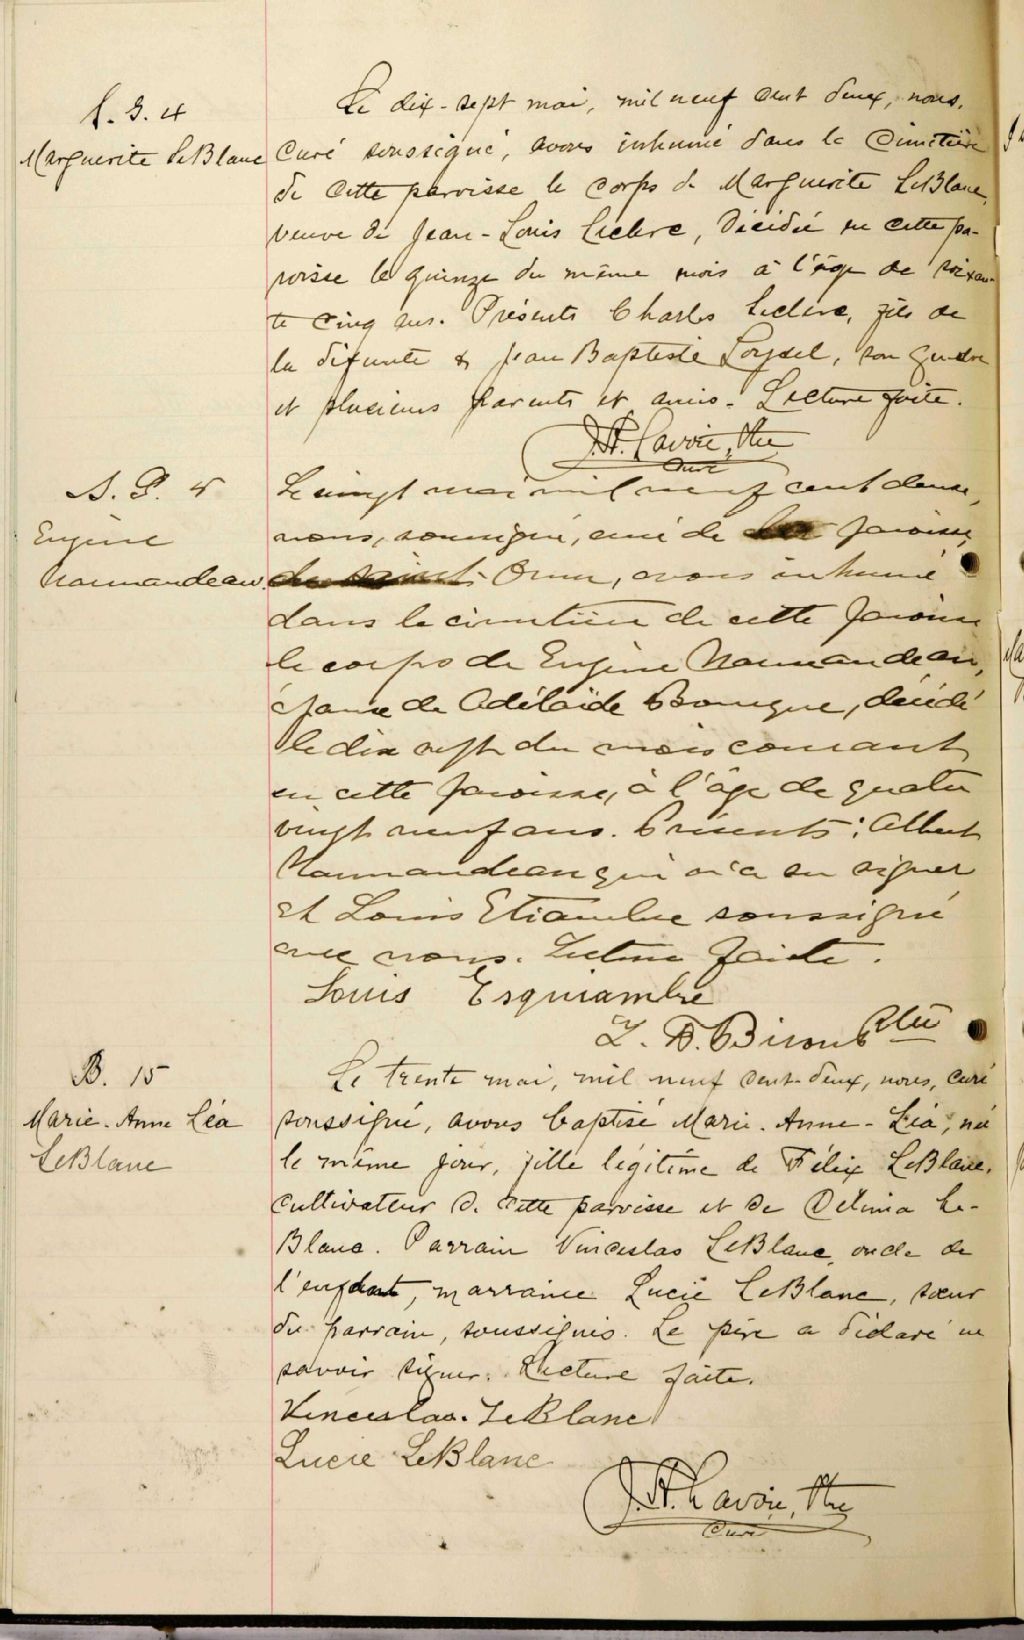 S. G. 4
Marguerite LeBlanc
Le dix-sept mai, mil neuf cent deux, nous,
curé soussigné, avons inhumé dans le cimetière
de cette paroisse le corps de Marguerite LeBlanc,
veuve de Jean-Louis Leclerc, décédée en cette pa-
roisse le quinze du même mois à l'âge de soixan-
te cinq ans. Présents Charles Leclerc, fils de
la défunte & Jean Baptiste Loysel, son gendre
et plusieurs parents et amis. Lecture faite.
J. A. Lavoie, Ptre
Curé
S. G. 5
Eugène
Normandeau.
Le vingt mai mil neuf cent deux,
nous, soussigné, curé de paroisse,
avons inhumé
dans le cimetière de cette paroisse
le corps de Eugène Normandeau,
époux de Adélaïde Bourque, décédé
le dix sept du mois courant
en cette paroisse, à l'âge de quatre
vingt neuf ans. Présents: Albert
Normandeau qui n'a su signer
et Louis Etiambre soussigné
avec nous. Lecture faite.
Louis Esquiambre
Ptre
B. 15
Marie-Anne Léa
LeBlanc
Le trente mai, mil neuf cent-deux, nous, curé
soussigné, avons baptisé Marie-Anne-Léa, née
le même jour, fille légitime de Félix LeBlanc,
cultivateur de cette paroisse et de Délima Le-
Blanc. Parrain Vinceslas LeBlanc, oncle de
l'enfant, marraine Lucie LeBlanc, sœur
du parrain, soussignés. Le père a déclaré ne
savoir signer. Lecture faite.
Vinceslas LeBlanc
Lucie LeBlanc
J. A. Lavoie, Ptre
Curé